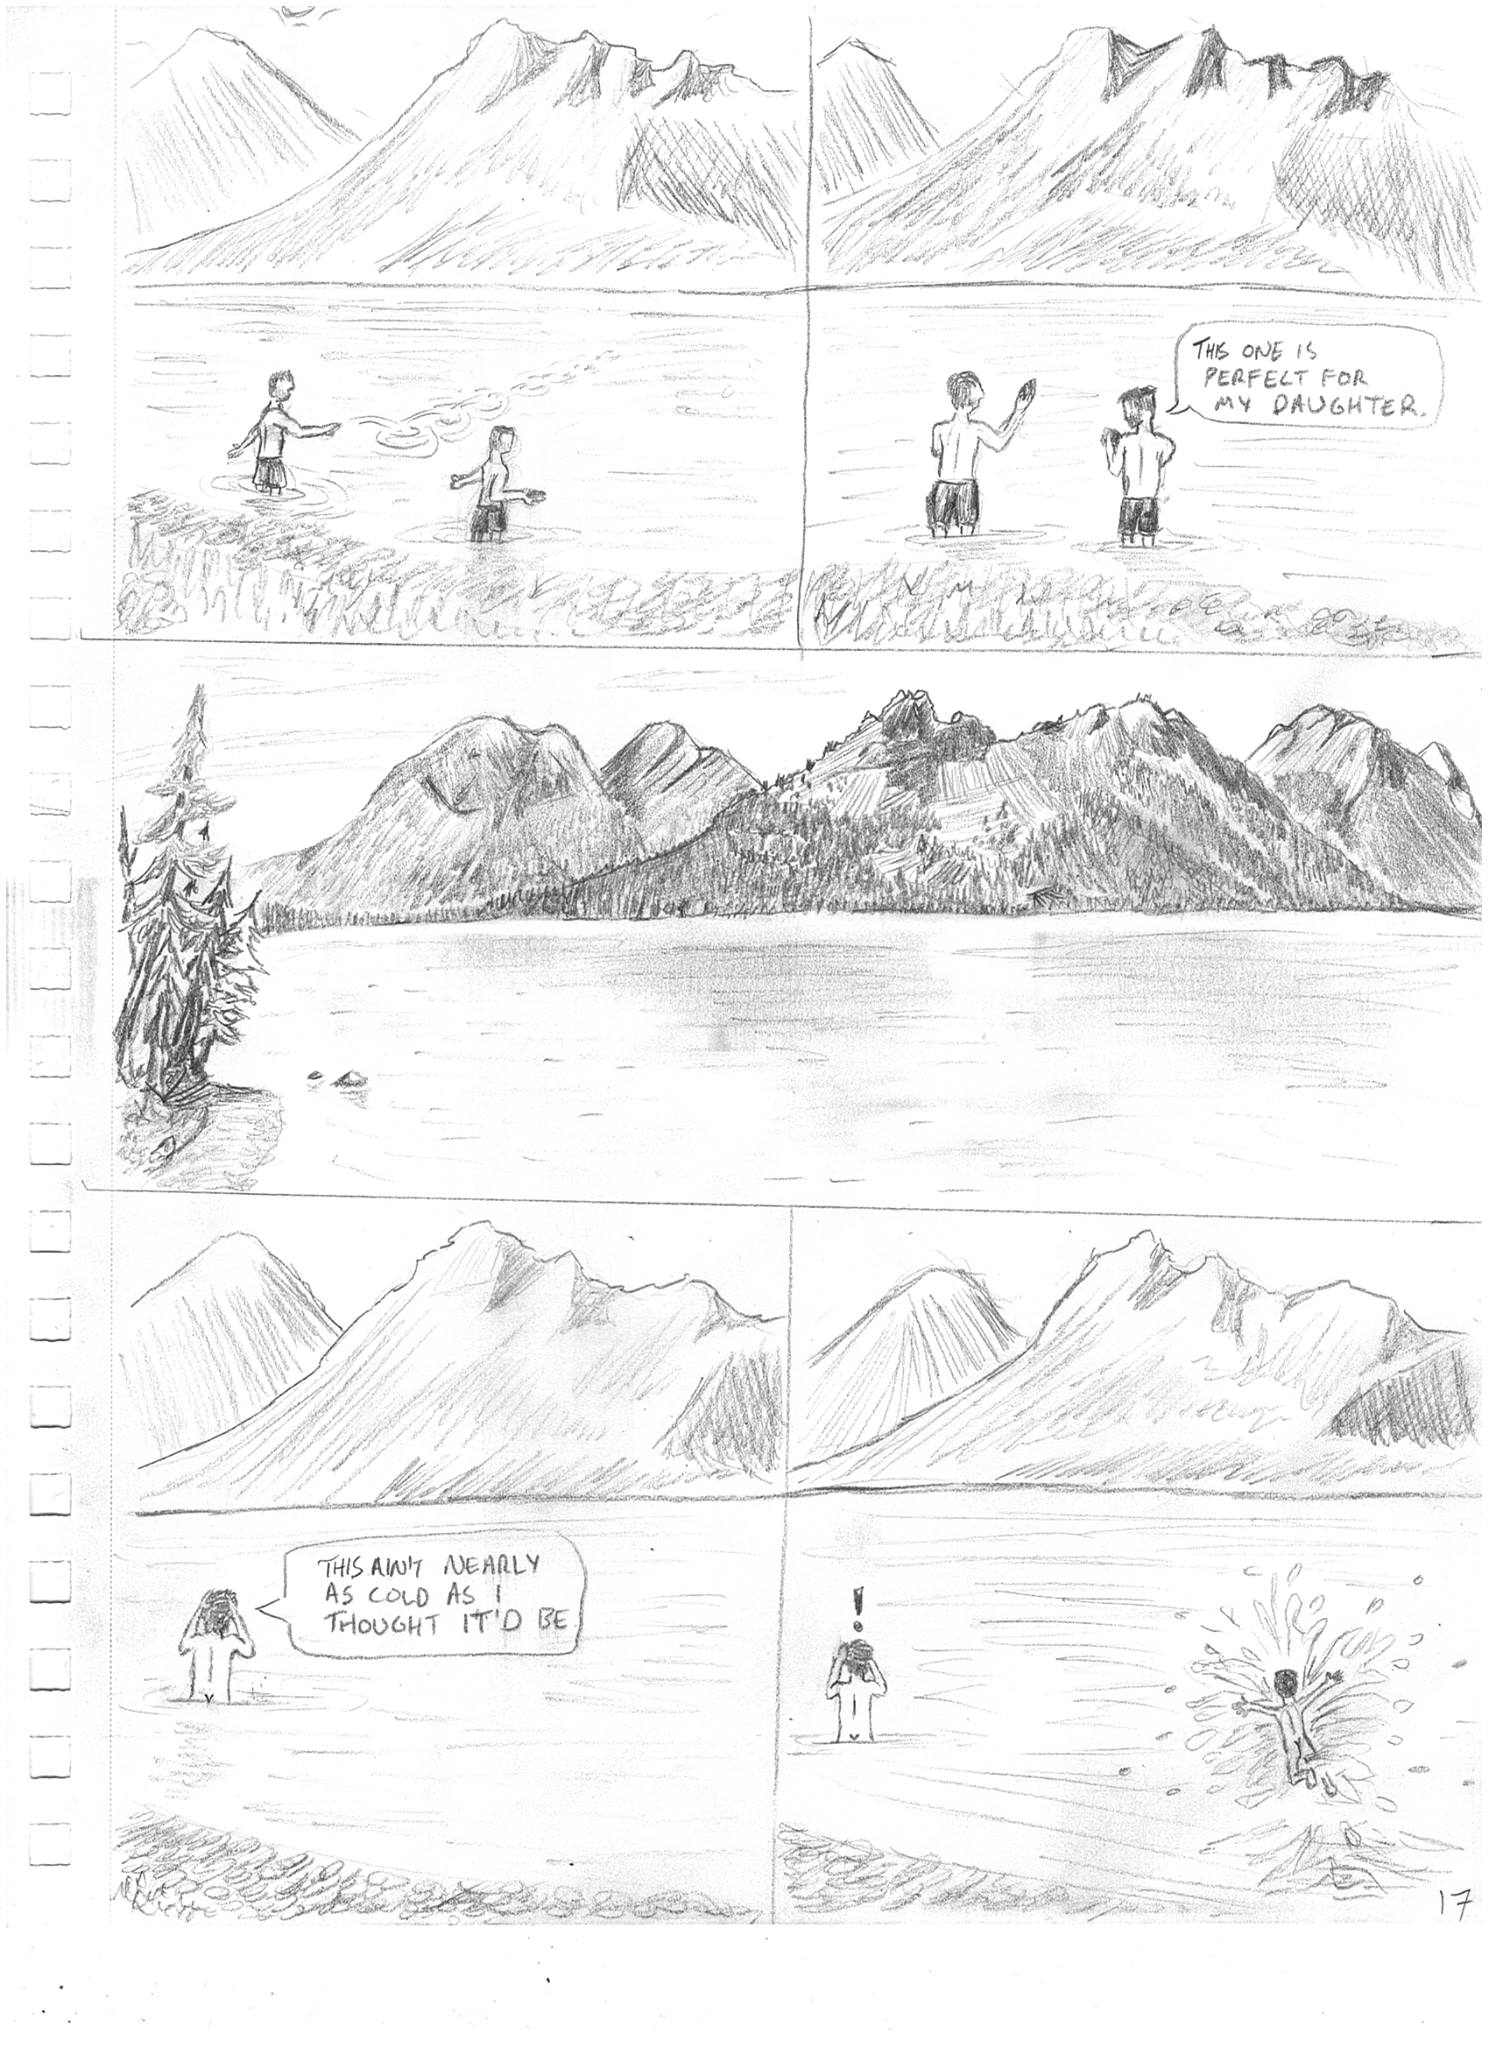 THIS ONE IS
PERFECT FOR
MY DAUGHTER.
THIS AIN'T NEARLY
AS COLD AS I
THOUGHT IT'D BE
!
17